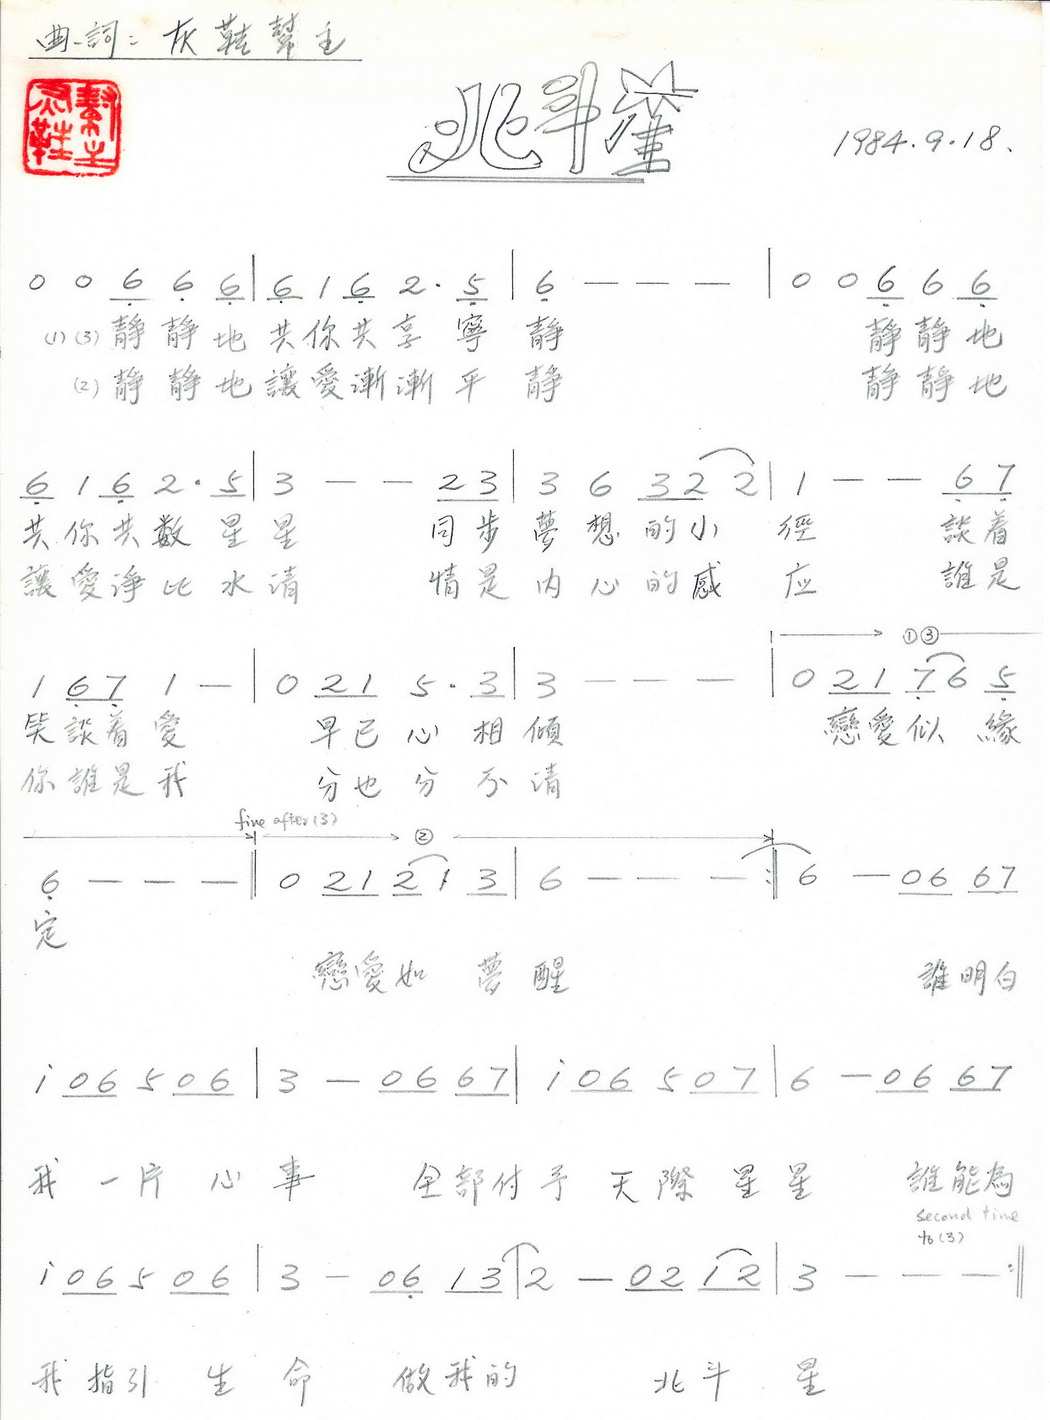 曲、詞：灰鞋幫主
北斗星
1984.9.18.
0 0 6 6 6 | 6 1 6 2 · 5 | 6 — — — | 0 0 6 6 6
(1) (3) 靜靜地共你共享寧靜 靜靜地
(2) 靜靜地讓愛漸漸平靜 靜靜地
6 1 6 2 · 5 | 3 — — 2 3 | 3 6 3 2 2 | 1 — — 6 7
共你共数星星 同步夢想的小徑 談着
讓愛諍比水清 情是内心的感应 誰是
1 6 7 1 — | 0 2 1 5 · 3 | 3 — — — | 0 2 1 7 6 5
① ③
笑談着愛 早已心相傾 戀愛似緣
你誰是我 分也分不清
fine after (3)
②
6 — — — || 0 2 1 2 1 3 | 6 — — — :|| 6 — 0 6 6 7
定
戀愛如夢醒 誰明白
i 0 6 5 0 6 | 3 — 0 6 6 7 | i 0 6 5 0 7 | 6 — 0 6 6 7
我一片心事 全部付予天際星星 誰能為
second time
to (3)
i 0 6 5 0 6 | 3 — 0 6 1 3 | 2 — 0 2 1 2 | 3 — — — :||
我指引生命 做我的 北斗星